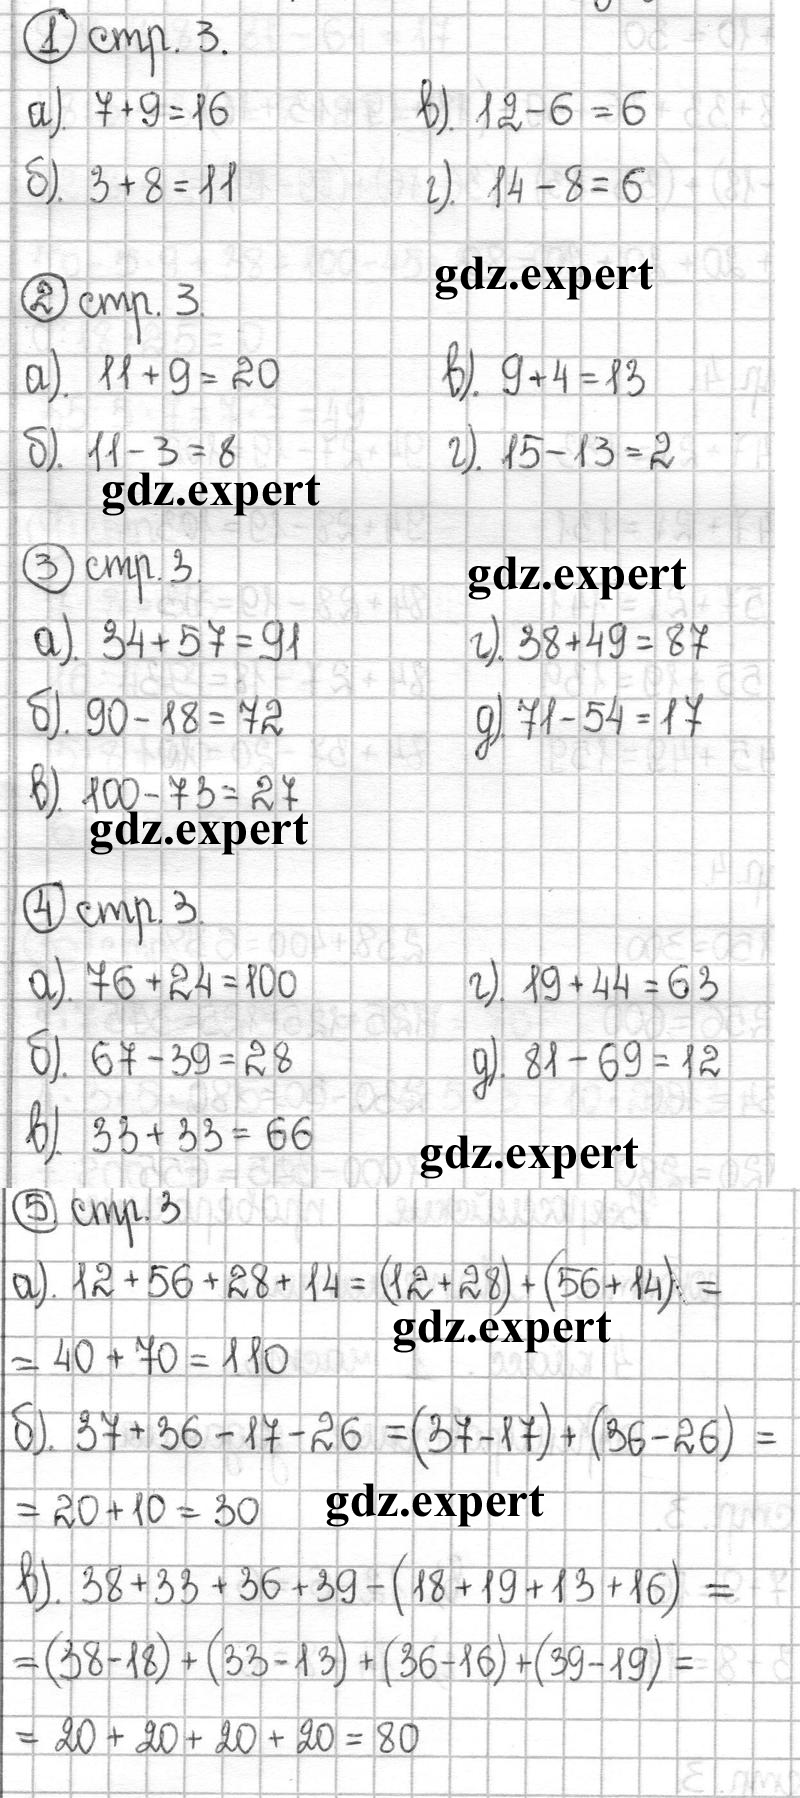 ① стр. 3.
а). 7+9=16 в). 12-6=6
б). 3+8=11 г). 14-8=6
gdz.expert
② стр. 3.
а). 11+9=20 в). 9+4=13
б). 11-3=8 г). 15-13=2
gdz.expert
③ стр. 3.
gdz.expert
а). 34+57=91 г). 38+49=87
б). 90-18=72 д). 71-54=17
в). 100-73=27
gdz.expert
④ стр. 3.
а). 76+24=100 г). 19+44=63
б). 67-39=28 д). 81-69=12
в). 33+33=66
gdz.expert
⑤ стр. 3
а). 12+56+28+14=(12+28)+(56+14)=
gdz.expert
=40+70=110
б). 37+36-17-26=(37-17)+(36-26)=
=20+10=30
gdz.expert
в). 38+33+36+39-(18+19+13+16)=
=(38-18)+(33-13)+(36-16)+(39-19)=
=20+20+20+20=80